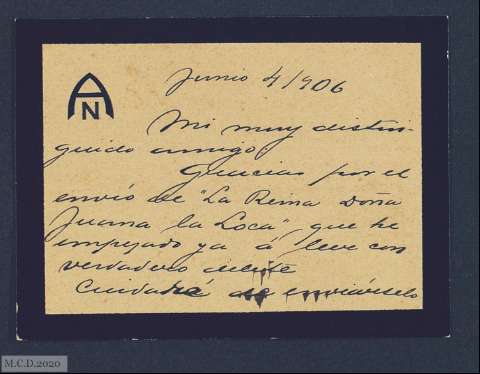 AN
Junio 4/906
Mi muy distin-
guido amigo
Gracias por el
envío de "La Reina Doña
Juana la Loca", que he
empezado ya á leer con
verdadero deleite
Cuidaré de enviárselo
M.C.D.2020